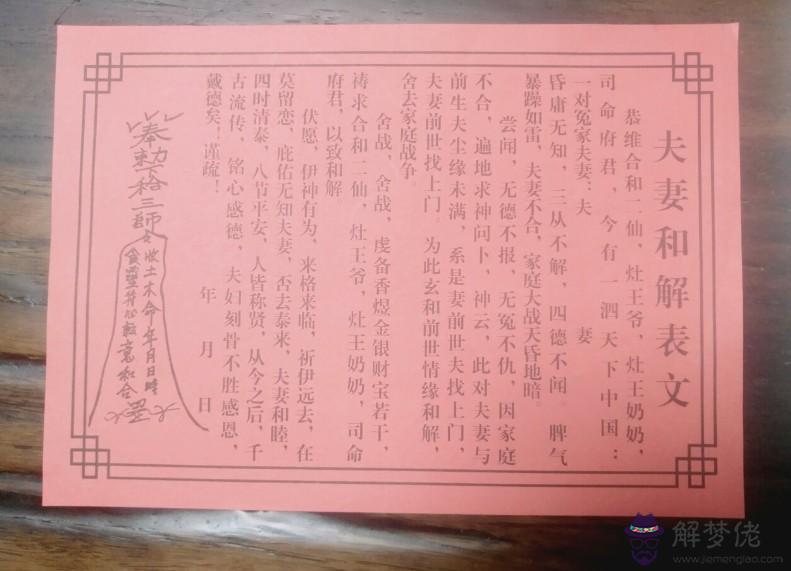 夫妻和解表文
恭维合和二仙，灶王爷，灶王奶奶，
司命府君，今有一泗天下中国：
一对冤家夫妻：夫 妻
昏庸无知，三从不解，四德不闻。脾气
暴躁如雷，夫妻不合，家庭大战天昏地暗。
尝闻，无德不报，无冤不仇，因家庭
不合，遍地求神问卜，神云，此对夫妻与
前生夫尘缘未满，系是妻前世夫找上门，
夫妻前世找上门。为此玄和前世情缘和解，
舍去家庭战争。
舍战，舍战，虔备香煜金银财宝若干，
祷求合和二仙，灶王爷，灶王奶奶，司命
府君，以致和解。
伏愿，伊神有为，来格来临，祈伊远去，在
莫留恋，庇佑无知夫妻，否去泰来，夫妻和睦，
四时清泰，八节平安，人皆称贤，从今之后，千
古流传，铭心感德，夫妇刻骨不胜感恩，
戴德矣！谨疏！
年 月 日
奉勅 三師
收土木命 年月日時
和合
解梦佬
www.jiemenglao.com